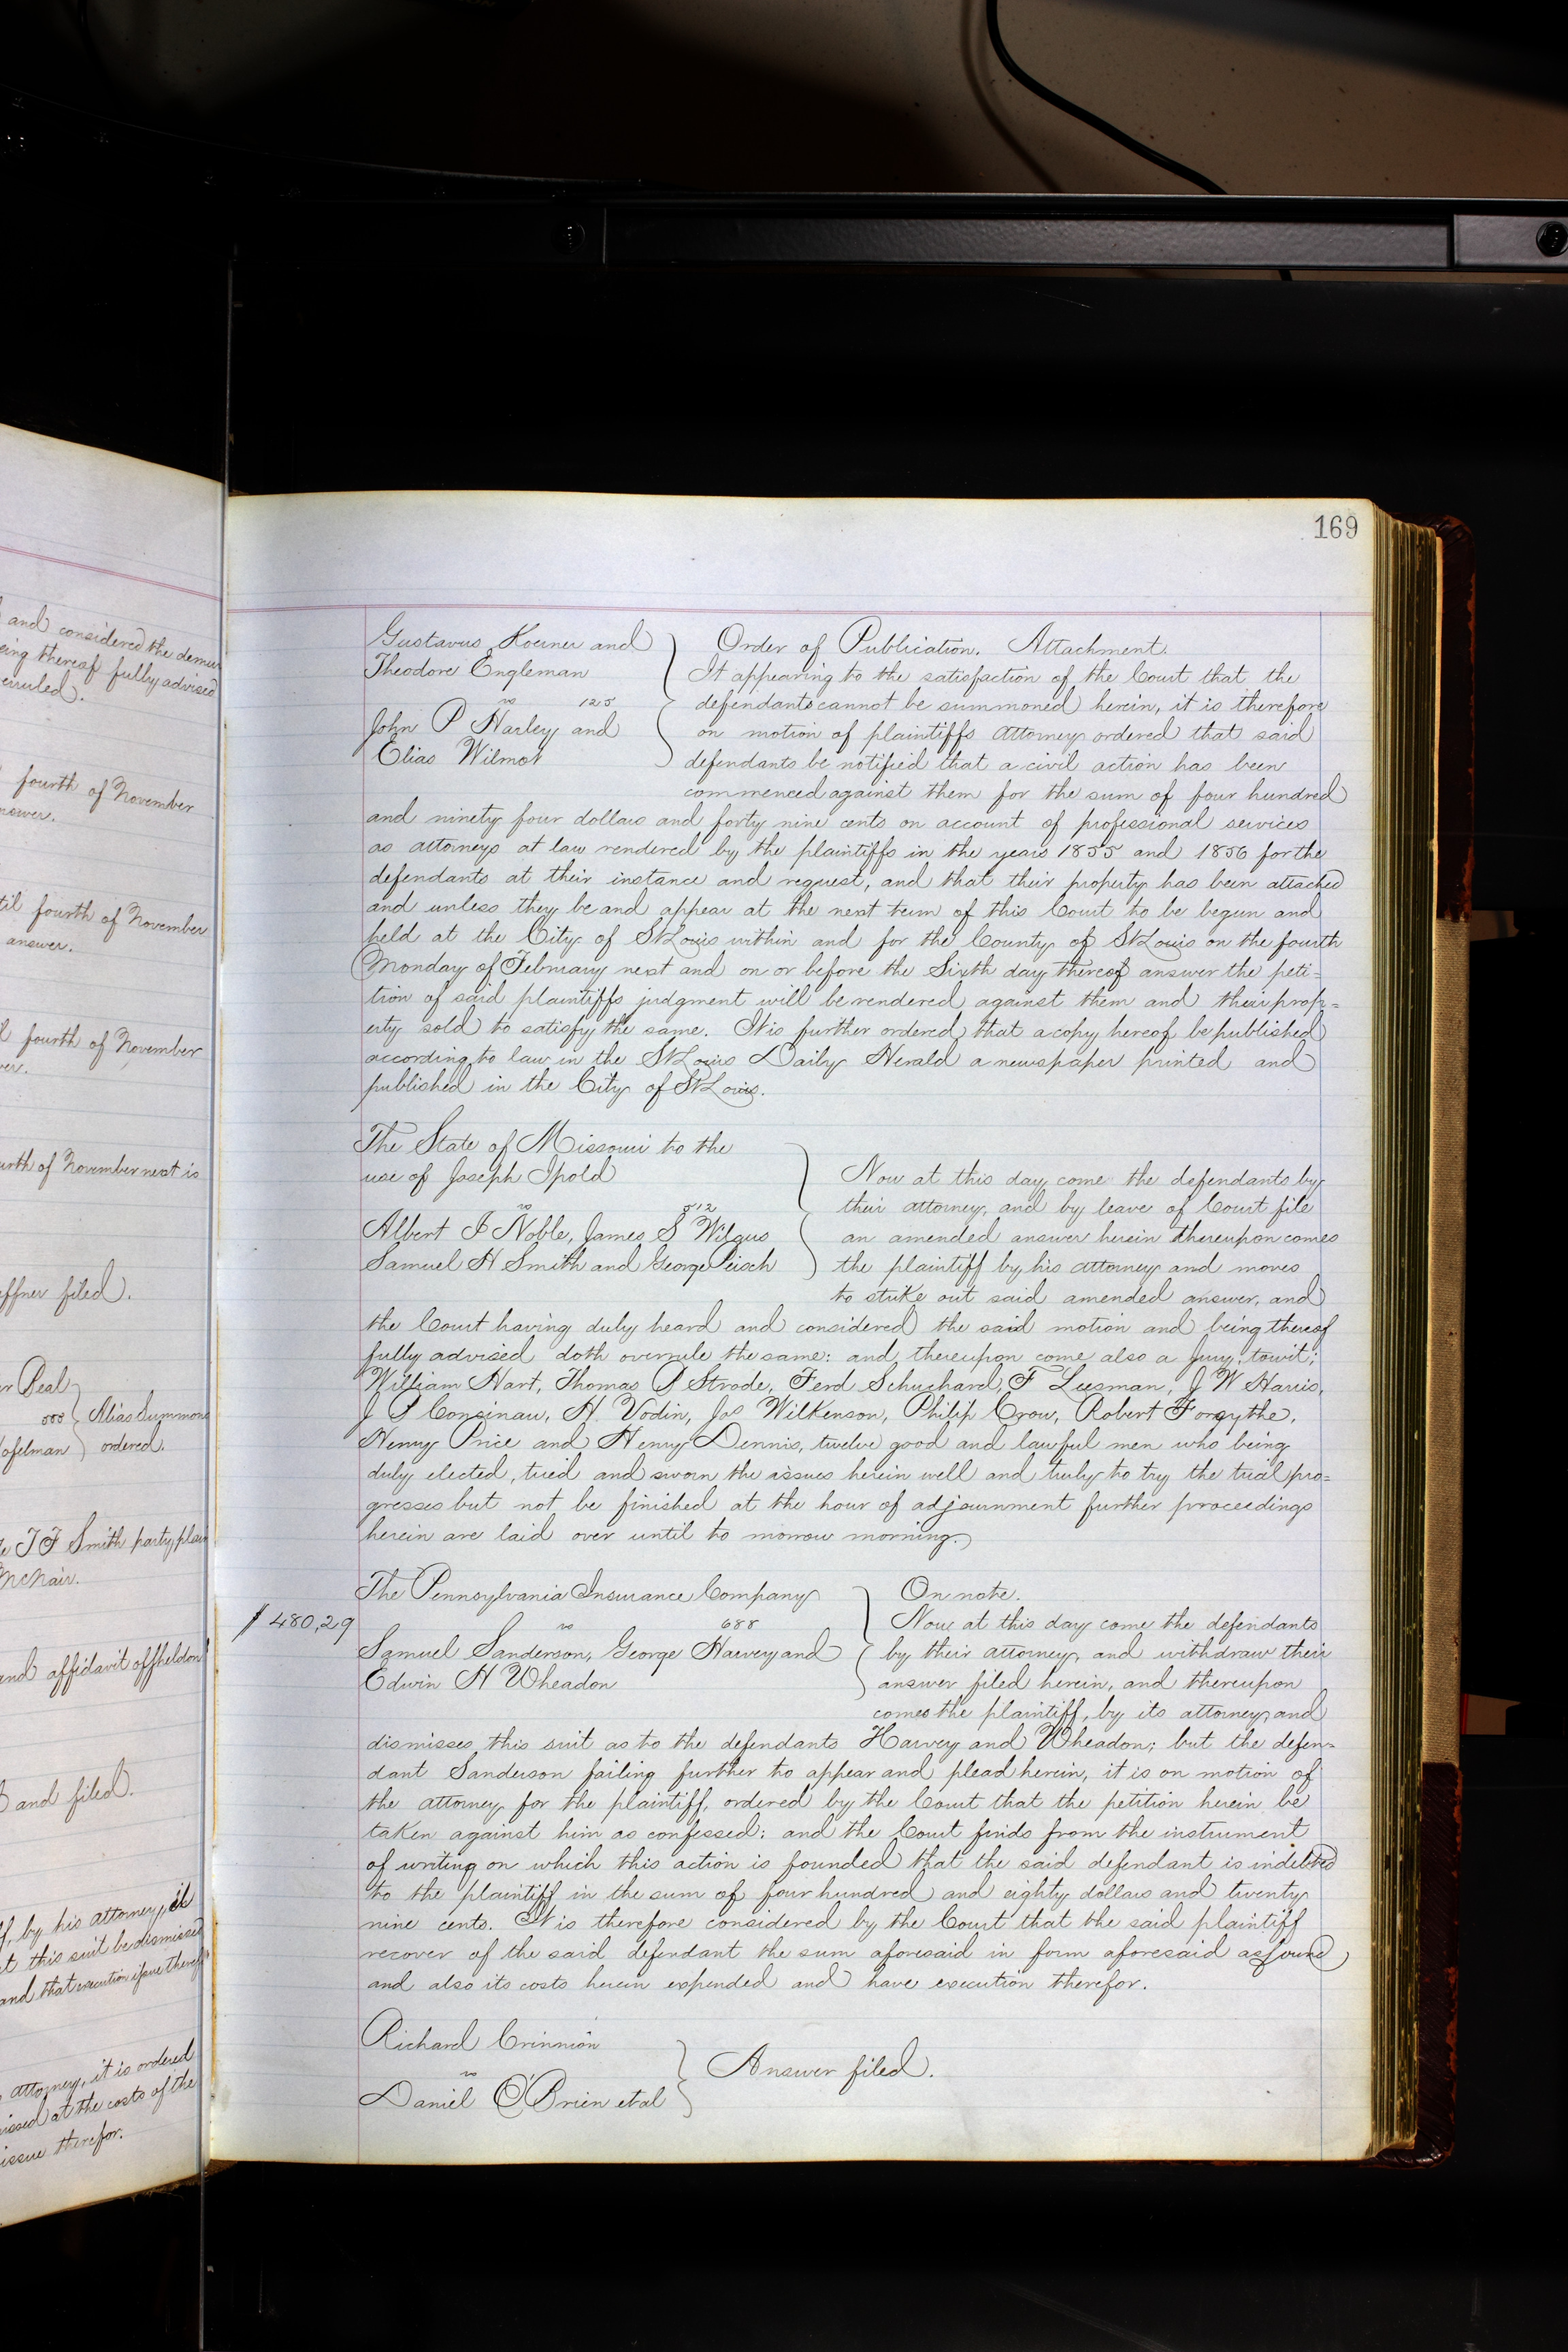 and considered the demur
eing thereof fully advised
erruled.
fourth of November
nswer.
til fourth of November
answer.
fourth of November
wer.
urth of November next is
effner filed.
er Peal
555 Alias Summons
ofelman ordered.
J F Smith party plain
McNair.
and affidavit of Sheldon
and filed.
ff, by his attorney, it
at this suit be dismissed
and that execution issue therefor
attorney, it is ordered
issed at the costs of the
issue therefor.
169
Gustavus Koerner and
Theodore Engleman
vs 125
John P Harley and
Elias Wilmot
Order of Publication. Attachment.
It appearing to the satisfaction of the Court that the
defendants cannot be summoned herein, it is therefore
on motion of plaintiffs attorney ordered that said
defendants be notified that a civil action has been
commenced against them for the sum of four hundred
and ninety four dollars and forty nine cents on account of professional services
as attorneys at law rendered by the plaintiffs in the years 1855 and 1856 for the
defendants at their instance and request, and that their property has been attached
and unless they be and appear at the next term of this Court to be begun and
held at the City of St Louis within and for the County of St Louis on the fourth
Monday of February next and on or before the Sixth day thereof answer the peti=
tion of said plaintiffs judgment will be rendered against them and their prop=
erty sold to satisfy the same. It is further ordered that a copy hereof be published
according to law in the St Louis Daily Herald a newspaper printed and
published in the City of St Louis.
The State of Missouri to the
use of Joseph Ipold
vs 512
Albert I Noble, James S Wilgus
Samuel H Smith and George Peisch
Now at this day come the defendants by
their attorney, and by leave of Court file
an amended answer herein thereupon comes
the plaintiff by his attorney and moves
to strike out said amended answer, and
the Court having duly heard and considered the said motion and being thereof
fully advised doth overrule the same: and thereupon come also a jury, towit;
William Hart, Thomas P Strode, Ferd Schuchard, F Leesman, J W Harris,
J P Consinau, H. Vodin, Jas Wilkenson, Philip Crow, Robert Forsythe,
Henry Price and Henry Dennis, twelve good and lawful men who being
duly elected, tried and sworn the issues herein well and truly to try the trial pro=
gresses but not be finished at the hour of adjournment further proceedings
herein are laid over until to morrow morning.
The Pennsylvania Insurance Company
$480,29
vs 688
Samuel Sanderson, George Harvey and
Edwin H Wheadon
On note.
Now at this day come the defendants
by their attorney, and withdraw their
answer filed herein, and thereupon
comes the plaintiff, by its attorney, and
dismisses this suit as to the defendants Harvey and Wheadon; but the defen=
dant Sanderson failing further to appear and plead herein, it is on motion of
the attorney for the plaintiff, ordered by the Court that the petition herein be
taken against him as confessed: and the Court finds from the instrument
of writing on which this action is founded that the said defendant is indebted
to the plaintiff in the sum of four hundred and eighty dollars and twenty
nine cents. It is therefore considered by the Court that the said plaintiff
recover of the said defendant the sum aforesaid in form aforesaid as found
and also its costs herein expended and have execution therefor.
Richard Crinnion
vs
Daniel O'Brien et al
Answer filed.